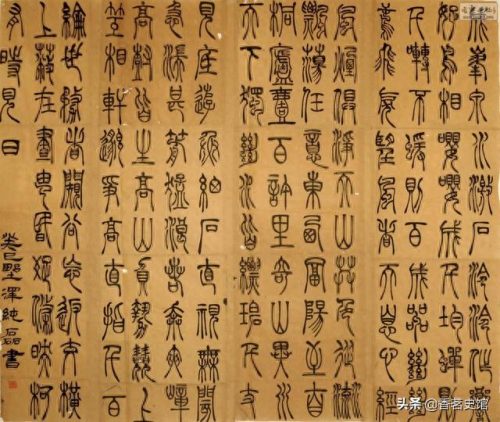 風煙俱淨天山共色從流
飄蕩任意東西自富陽至
桐廬壹百許里奇山異水
天下獨絕水皆縹碧千丈
見底游魚細石直視無
急湍甚箭猛浪若奔
高山負勢競上
互相軒邈爭高直指千百
成峯泉水激石泠泠作
好鳥相嚶嚶成韻
千轉不窮猨則百
鳶飛戾天望峯息心經
綸世務者闚谷忘返橫
上蔽在晝猶昏疏條映柯
有時見日
癸巳墅澤純磊書
头条@香茗史馆